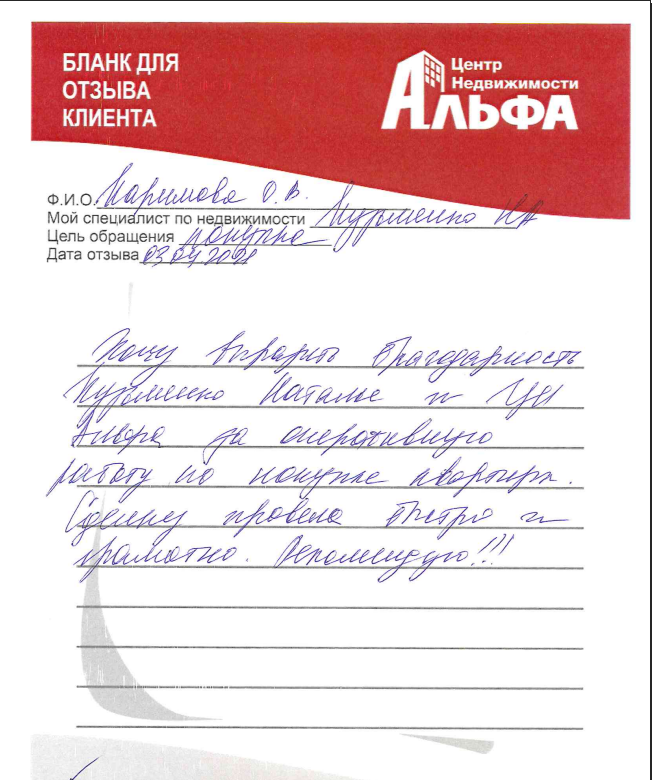 БЛАНК ДЛЯ
ОТЗЫВА
КЛИЕНТА
Центр
Недвижимости
АЛЬФА
Ф.И.О. Каримова О.В.
Мой специалист по недвижимости Кузьменко НА
Цель обращения покупка
Дата отзыва 03 04 2021
Хочу выразить благодарность
Кузьменко Наталье и ЦН
Альфа за оперативную
работу по покупке квартиры.
Сделку провела быстро и
грамотно. Рекомендую!!!